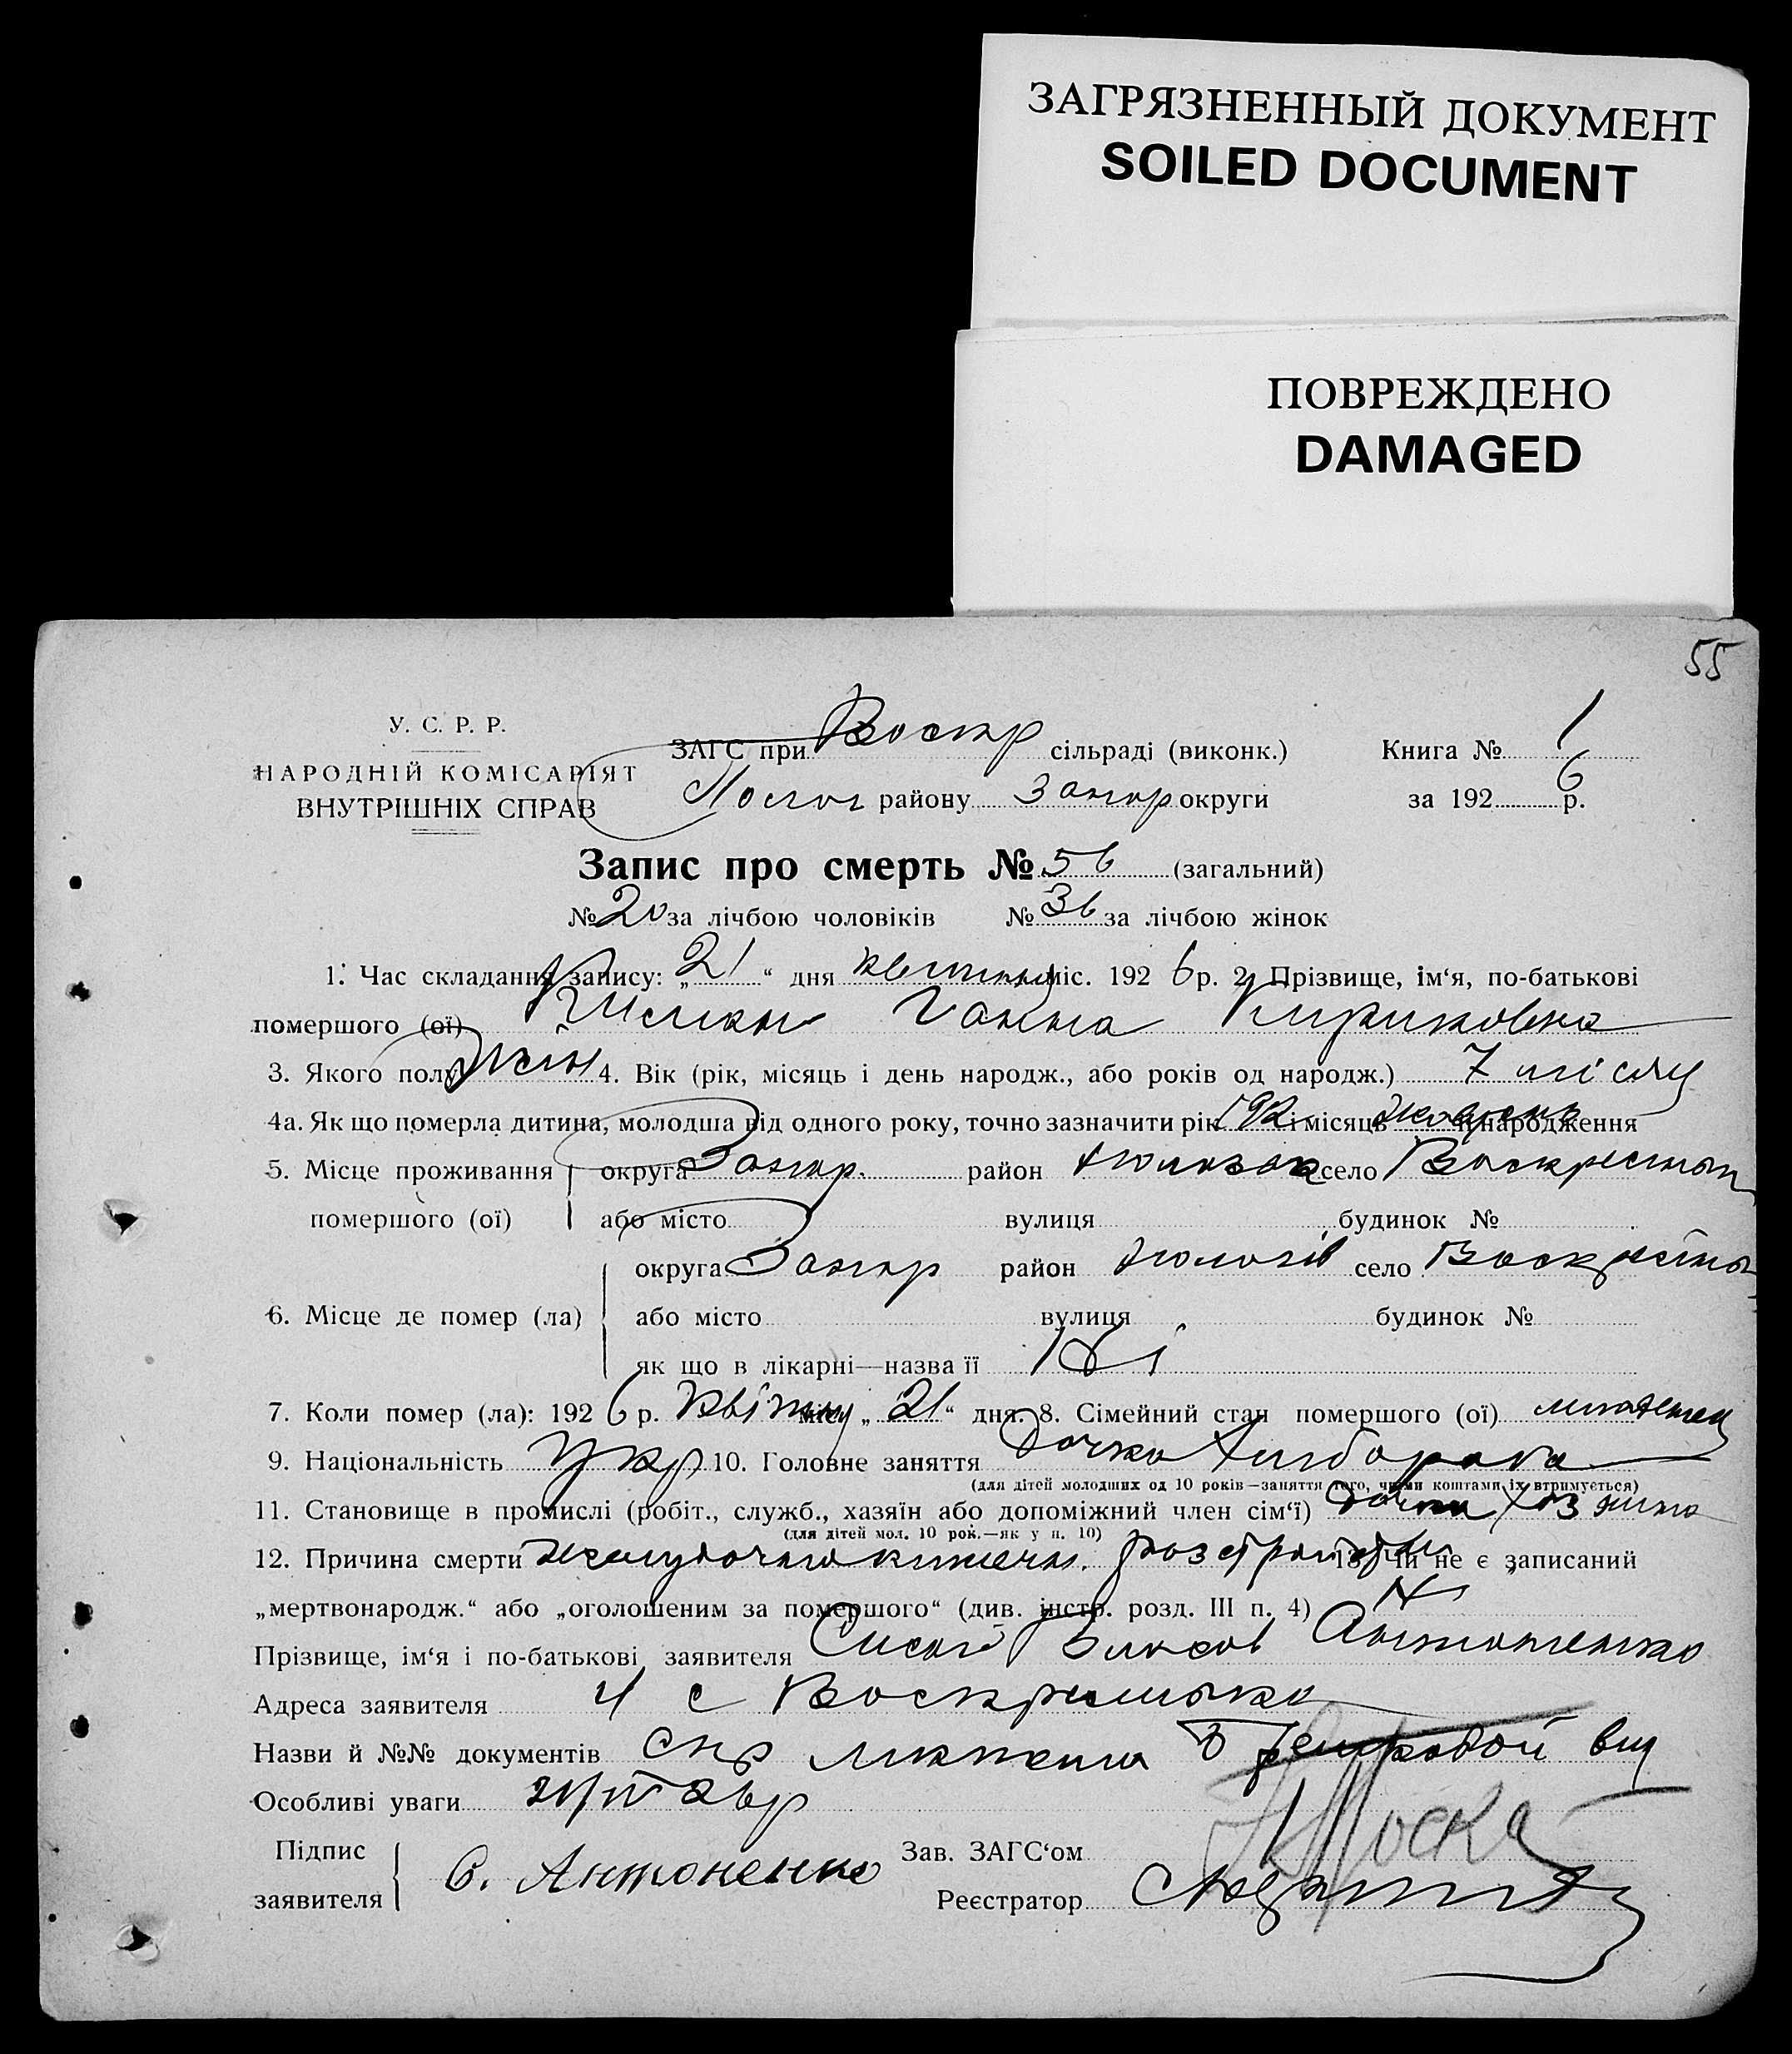 ЗАГРЯЗНЕННЫЙ ДОКУМЕНТ
SOILED DOCUMENT
ПОВРЕЖДЕНО
DAMAGED
55
У. С. Р. Р.
НАРОДНІЙ КОМІСАРІЯТ
ВНУТРІШНІХ СПРАВ
ЗАГС при Воскр сільраді (виконк.) Книга № 1
району Запор округи за 1926 р.
Запис про смерть № 56 (загальний)
№ 20 за лічбою чоловіків № 36 за лічбою жінок
1. Час складання запису: „21“ дня квітня міс. 1926 р. 2. Прізвище, ім‘я, по-батькові
помершого (ої) Ганна
3. Якого полу жін 4. Вік (рік, місяць і день народж., або років од народж.) 7 місяц
4а. Як що померла дитина, молодша від одного року, точно зазначити рік 192 і місяць жовтень народження
5. Місце проживання округа Запор. район село
помершого (ої) або місто вулиця будинок №
округа Запор район село
6. Місце де помер (ла) або місто вулиця будинок №
як що в лікарні—назва її
7. Коли помер (ла): 1926 р. квітня міс. „21“ дня. 8. Сімейний стан помершого (ої)
9. Національність Укр 10. Головне заняття дочка хлібороба
(для дітей молодших од 10 років—заняття того, чиїми коштами їх втримується)
11. Становище в промислі (робіт., служб., хазяїн або допоміжний член сім‘ї) дочка
(для дітей мол. 10 рок.—як у п. 10)
12. Причина смерти желудочно кишечн. 13. Чи не є записаний
„мертвонародж.“ або „оголошеним за помершого“ (див. інстр. розд. III п. 4)
Прізвище, ім‘я і по-батькові заявителя Антоненко
Адреса заявителя с
Назви й №№ документів
Особливі уваги
Підпис
заявителя С. Антоненко
Зав. ЗАГС‘ом
Реєстратор